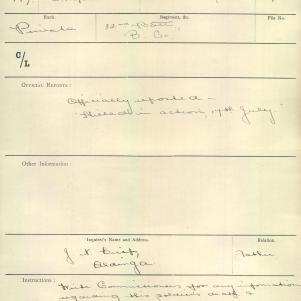 Rank.
Regiment, &c.
File No.
Private
B. Co.
C/L
OFFICIAL REPORTS:
Officially reported –
Killed in action, 17th July.
Other Information:
Inquirer's Name and Address.
Relation.
Aldinga
Father
Instructions:
Write Commissioners for any information
regarding this soldier's death &